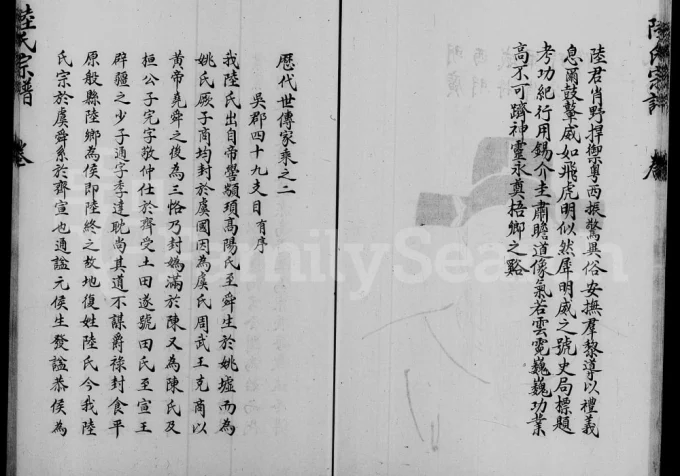 陸氏宗譜
卷
陸君肖野捍禦粵西振驚異俗安撫羣黎導以禮義
息爾鼓鼙威如飛虎明似然犀明威之號史局標題
考功紀行用錫介圭肅瞻道像氣若雲霓巍巍功業
高不可躋神靈永奠梧鄉之谿
歷代世傳家乘之二
吳郡四十九支目 有序
我陸氏出自帝嚳顓頊高陽氏至舜生於姚墟而為
姚氏厥子商均封於虞國因為虞氏周武王克商以
黃帝堯舜之後為三恪乃封媯滿於陳又為陳氏及
桓公子完字敬仲仕於齊受土田遂號田氏至宣王
辟疆之少子通字季達耽尚其道不謀爵祿封食平
原般縣陸鄉為侯即陸終之故地復姓陸氏今我陸
氏宗於虞舜系於齊宣也通諡元侯生發諡恭侯為
陸氏宗譜
卷
FamilySearch